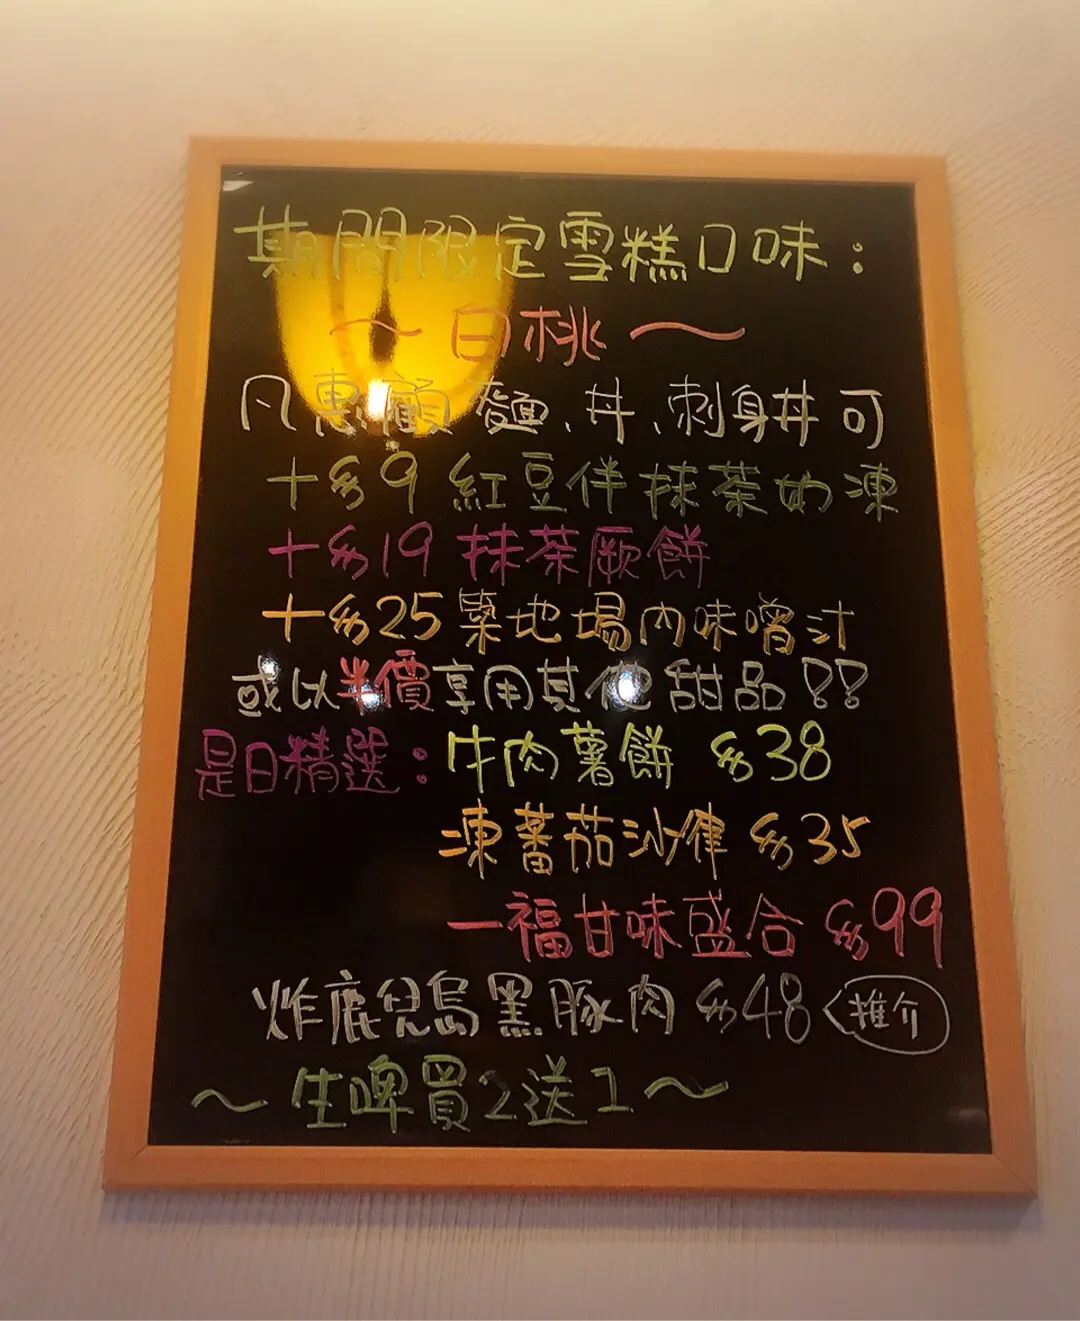 期間限定雪糕口味：
～白桃～
凡惠顧麵、丼、刺身丼可
+$9 紅豆伴抹茶奶凍
+$19 抹茶蕨餅
+$25 築地場內味噌汁
或以半價享用其他甜品！！
是日精選：牛肉薯餅 $38
凍蕃茄沙律 $35
一福甘味盛合 $99
炸鹿兒島黑豚肉 $48 推介
～生啤買2送1～